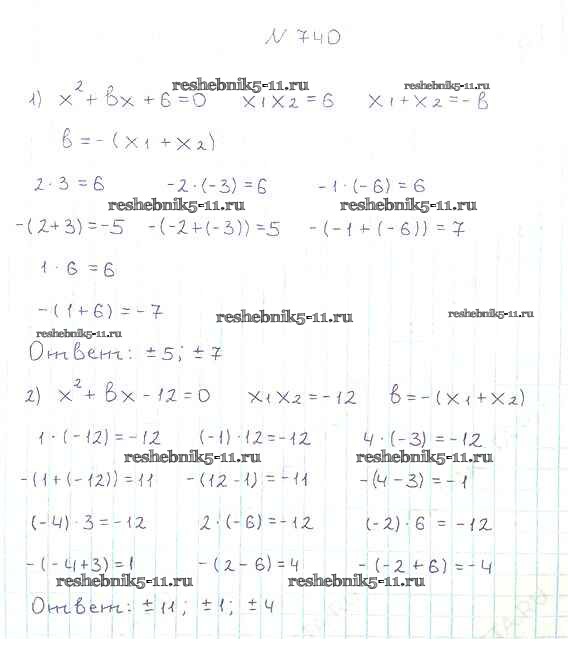 N 740
reshebnik5-11.ru reshebnik5-11.ru
1) x² + bx + 6 = 0 x₁x₂ = 6 x₁ + x₂ = -b
b = -(x₁ + x₂)
2 · 3 = 6 -2 · (-3) = 6 -1 · (-6) = 6
reshebnik5-11.ru reshebnik5-11.ru
-(2+3) = -5 -(-2+(-3)) = 5 -(-1+(-6)) = 7
1 · 6 = 6
-(1+6) = -7
reshebnik5-11.ru reshebnik5-11.ru
reshebnik5-11.ru
Ответ: ±5; ±7
2) x² + bx - 12 = 0 x₁x₂ = -12 b = -(x₁ + x₂)
1 · (-12) = -12 (-1) · 12 = -12 4 · (-3) = -12
reshebnik5-11.ru reshebnik5-11.ru
-(1+(-12)) = 11 -(12-1) = -11 -(4-3) = -1
(-4) · 3 = -12 2 · (-6) = -12 (-2) · 6 = -12
-(-4+3) = 1 -(2-6) = 4 -(-2+6) = -4
reshebnik5-11.ru reshebnik5-11.ru
Ответ: ±11; ±1; ±4